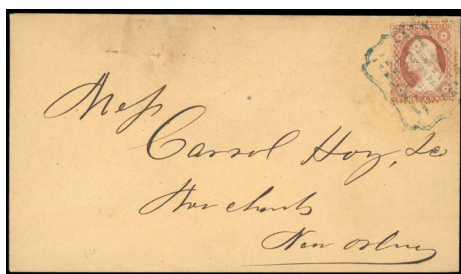 Mess
Carrol Hoy, &c
Merchants
New Orleans